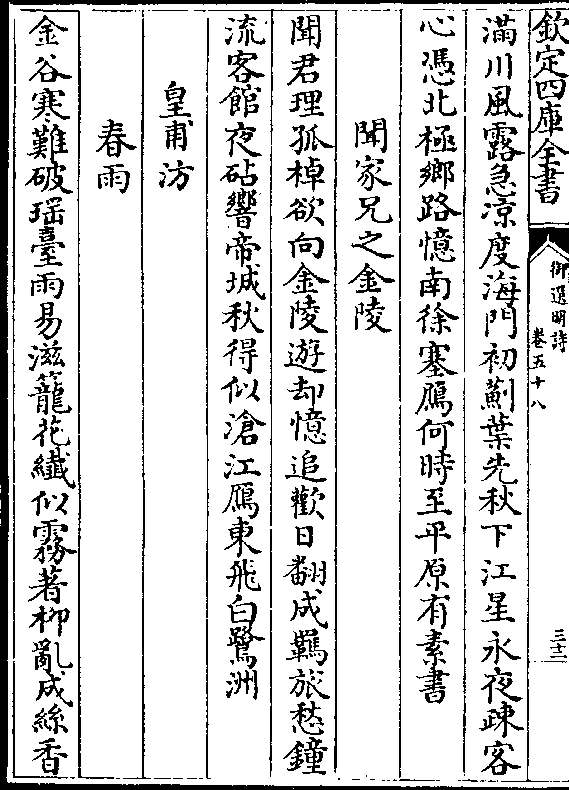 欽定四庫全書
御選明詩
卷五十八
三十二
滿川風露急涼度海門初薊葉先秋下江星永夜疎客
心憑北極鄉路憶南徐塞鴈何時至平原有素書
聞家兄之金陵
聞君理孤棹欲向金陵遊却憶追歡日翻成羈旅愁鐘
流客館夜砧響帝城秋得似滄江鴈東飛白鷺洲
皇甫汸
春雨
金谷寒難破瑶臺雨易滋籠花纎似霧著柳亂成絲香